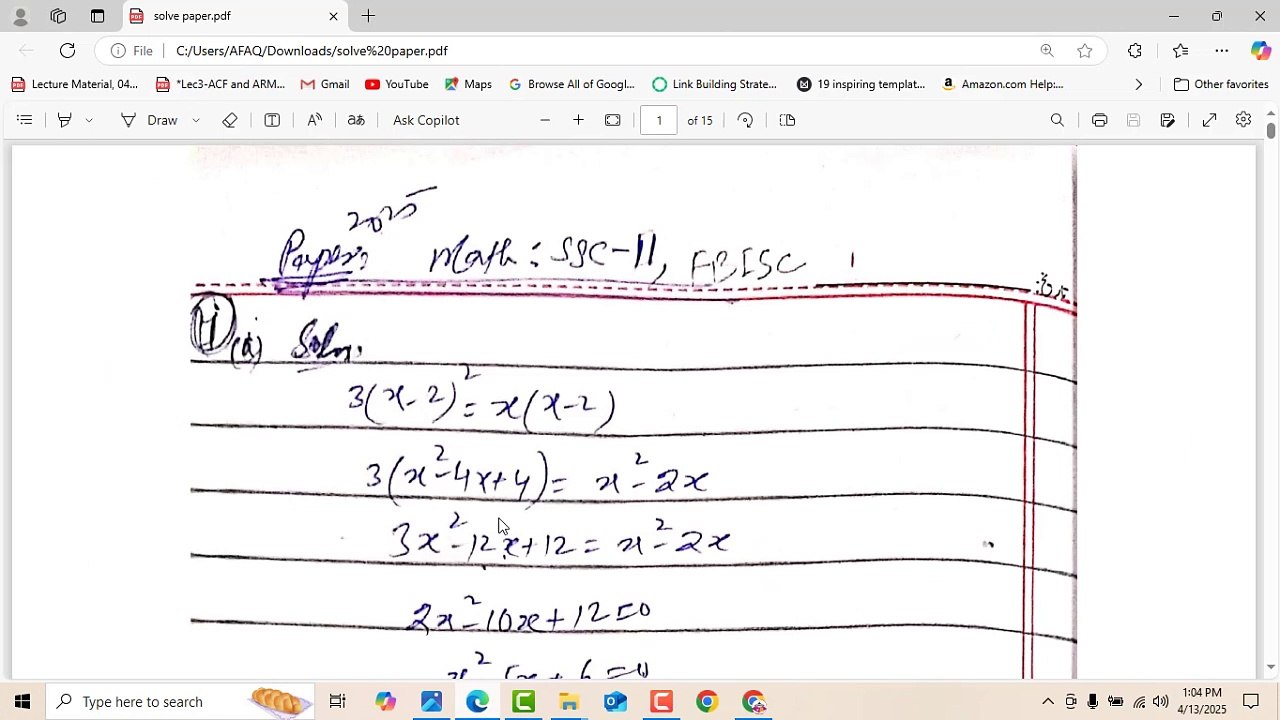 solve paper.pdf
File C:/Users/AFAQ/Downloads/solve%20paper.pdf
Lecture Material, 04... *Lec3-ACF and ARM... Gmail YouTube Maps Browse All of Googl... Link Building Strate... 19 inspiring templat... Amazon.com Help:... Other favorites
Draw Ask Copilot 1 of 15
2025
Paper: Math: SSC-II, FBISC
(i) Soln.
3(x-2)² = x(x-2)
3(x²-4x+4) = x²-2x
3x²-12x+12 = x²-2x
2x²-10x+12=0
Type here to search
1:04 PM
4/13/2025